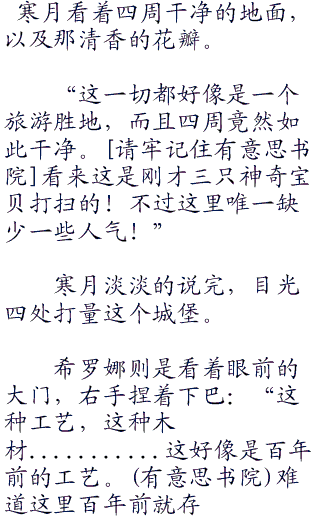 寒月看着四周干净的地面，
以及那清香的花瓣。
“这一切都好像是一个
旅游胜地，而且四周竟然如
此干净。[请牢记住有意思书
院]看来这是刚才三只神奇宝
贝打扫的！不过这里唯一缺
少一些人气！”
寒月淡淡的说完，目光
四处打量这个城堡。
希罗娜则是看着眼前的
大门，右手捏着下巴：“这
种工艺，这种木
材............这好像是百年
前的工艺。(有意思书院)难
道这里百年前就存